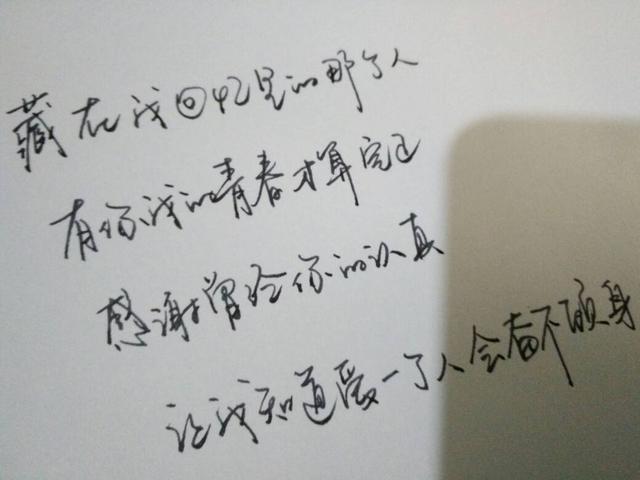 藏在我回忆里的那个人
有你我的青春才算完正
感谢曾经你的认真
让我知道爱一个人会奋不顾身